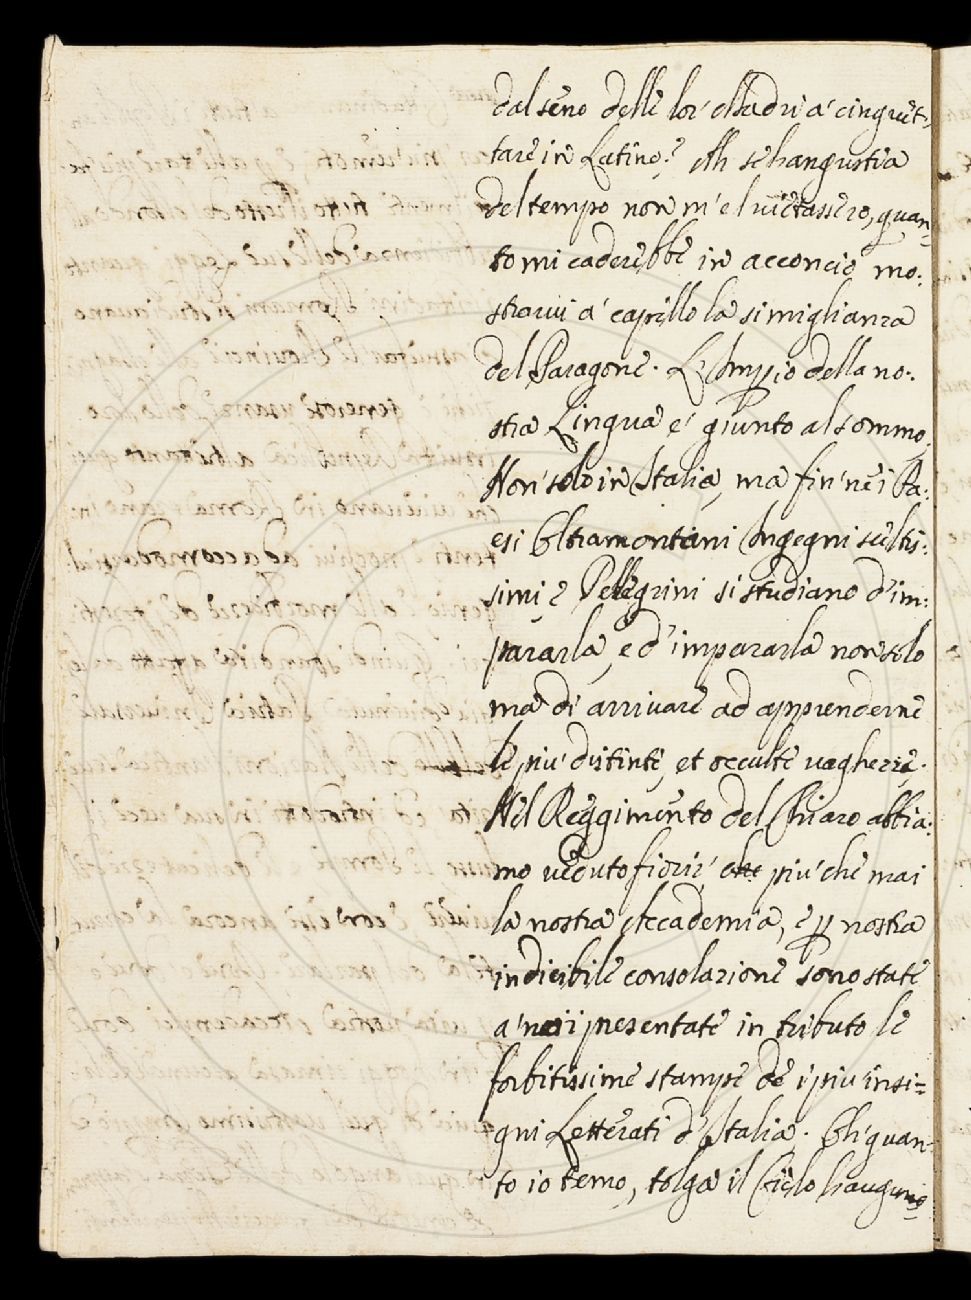 dal seno delle lor' Madri a' cinguet,
tare in Latino? Ah se l'angustia
del tempo non m'el vietassero, quan=
to mi caderebbe in acconcio mo:
strarvi a' capello la simiglianza
del Paragone. L'Ampio della no:
stra Lingua e' giunto al sommo,
Non' solo in Italia, ma fin' ne i Pa:
esi Oltramontani Ingegni sceltis:
simi, e Pellegrini si studiano d'im:
pararla, e d'impararla non solo
ma di arrivare ad apprenderne
le piu' distinte, et occulte vaghezze.
Nel Reggimento del Chiaro abbia:
mo veduto fiorir' che piu' che mai
la nostra Accademia, e p nostra
indicibile consolazione sono state
a' noi presentate in tributo le
forbitissime stampe de i piu insi=
gni Letterati d'Italia. Oh' quan=
to io temo, tolga il Cielo l'augurio